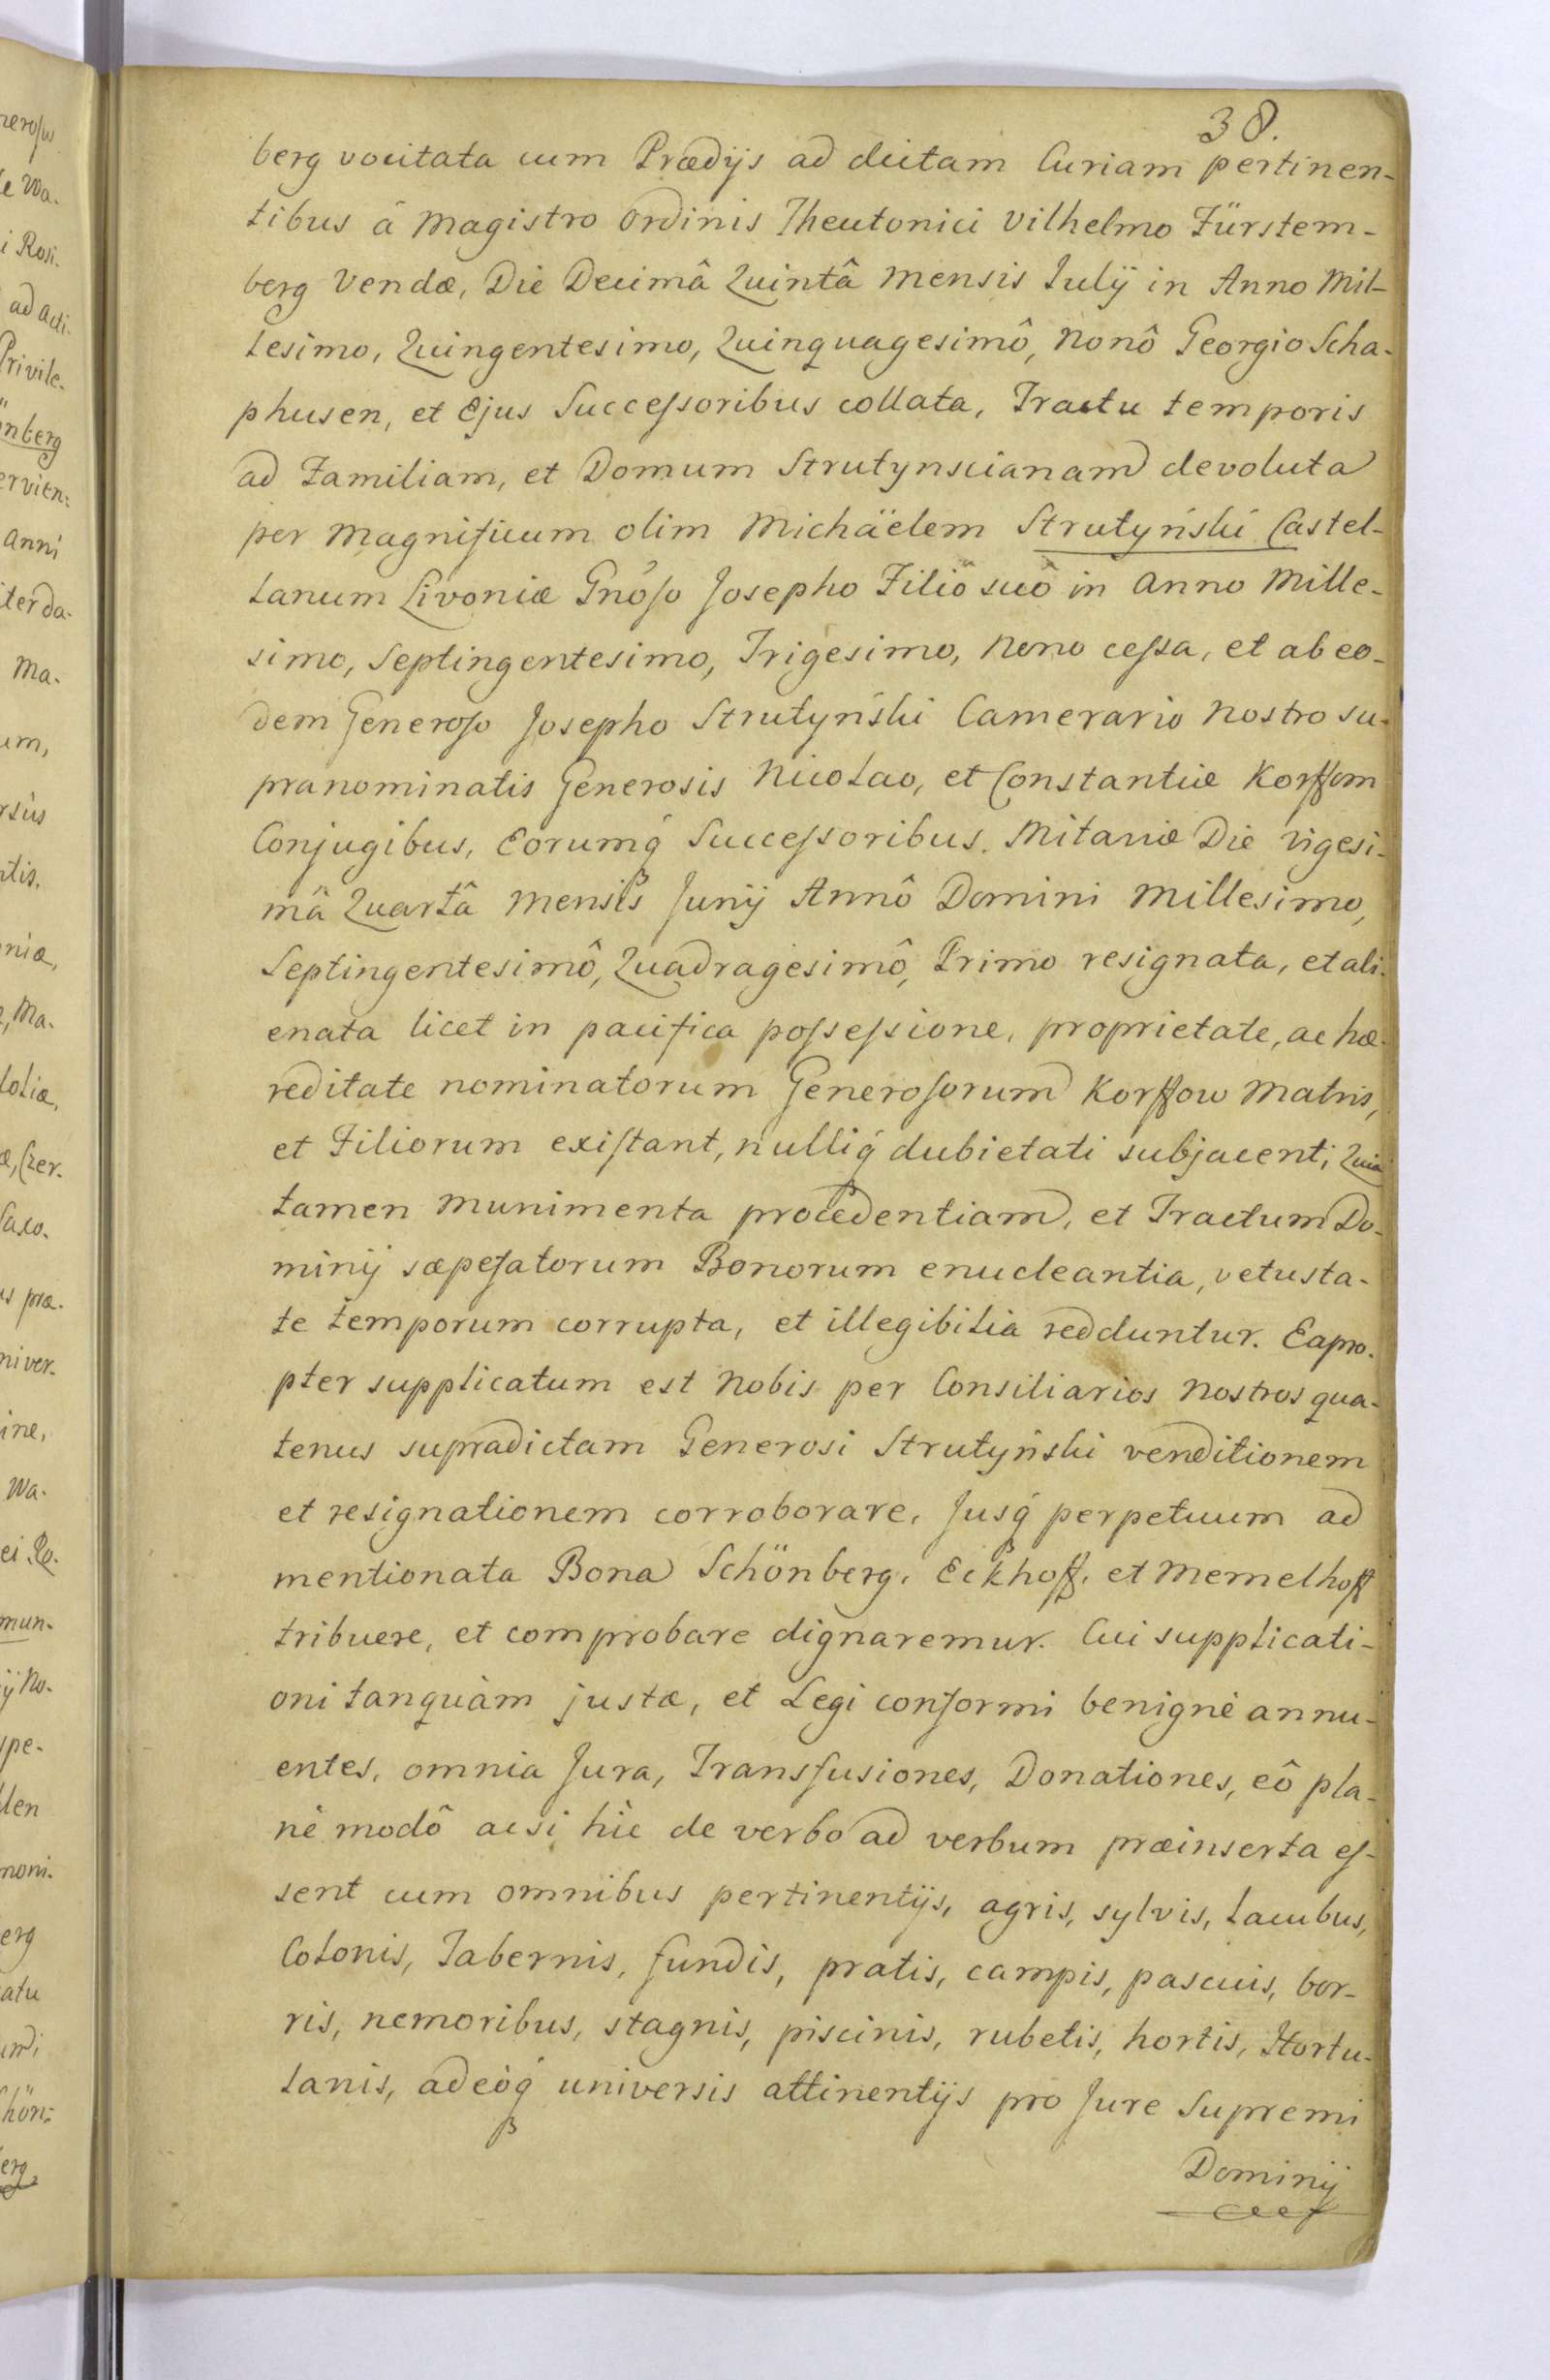 38.
berg vocitata cum Prædijs ad dictam Curiam pertinen-
tibus â Magistro Ordinis Theutonici Vilhelmo Fürstem-
berg Vendæ, Die Decimâ Quintâ Mensis Julij in Anno Mil-
lesimo, Quingentesimo, Quinquagesimô, Nonô Georgio Scha-
phusen, et Ejus Succeſsoribus collata, Tractu temporis
ad Familiam, et Domum Strutynscianam devoluta
per Magnificum olim Michäelem Strutyński Castel-
lanum Livoniæ Gnōso Josepho Filiô suô in Anno Mille-
simo, Septingentesimo, Trigesimo, Nono ceſsa, et ab eo-
dem Generoso Josepho Strutyński Camerario Nostro su-
pranominatis Generosis Nicolao, et Constantiæ Korffom
Conjugibus, Eorumq́ Succeſsoribus. Mitaviæ Die vigesi-
mâ Quartâ Mensis Junij Annô Domini Millesimo,
Septingentesimô, Quadragesimô, Primo resignata, et ali-
enata licet in pacifica poſseſsione, proprietate, ac hæ-
reditate nominatorum Generosorum Korffow Matris,
et Filiorum existant, nulliq́ dubietati subjacent; Quia
tamen Munimenta procedentiam, et Tractum Do-
minij sæpefatorum Bonorum enucleantia, vetusta-
te temporum corrupta, et illegibilia redduntur. Eapro-
pter supplicatum est Nobis per Consiliarios Nostros qua-
tenus supradictam Generosi Strutyński venditionem
et resignationem corroborare, Jusq́ perpetuum ad
mentionata Bona Schönberg, Eckhoff, et Memelhoff
tribuere, et comprobare dignaremur. Cui supplicati-
oni tanquàm justæ, et Legi conformi benignè annu-
entes, omnia Jura, Transfusiones, Donationes, eô pla-
nè modô acsi hîc de verbo ad verbum præinserta eſ-
sent cum omnibus pertinentijs, agris, sylvis, lacubus,
Colonis, Tabernis, fundis, pratis, campis, pascuis, bor-
ris, nemoribus, stagnis, piscinis, rubetis, hortis, Hortu-
lanis, adeòq́ universis attinentijs pro Jure Supremi
Dominij